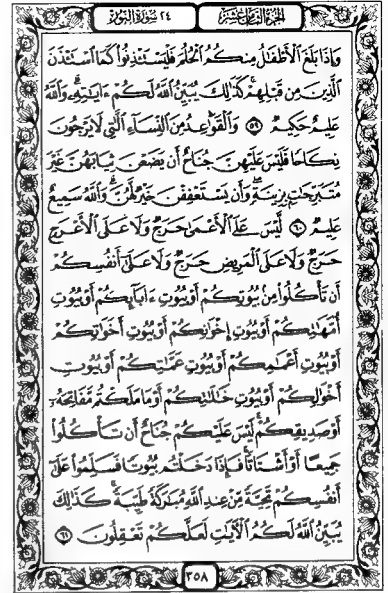 الجزء الثامن عشر ٢٤ سورة النور
وَإِذَا بَلَغَ ٱلْأَطْفَـٰلُ مِنكُمُ ٱلْحُلُمَ فَلْيَسْتَـْٔذِنُوا۟ كَمَا ٱسْتَـْٔذَنَ
ٱلَّذِينَ مِن قَبْلِهِمْ ۚ كَذَٰلِكَ يُبَيِّنُ ٱللَّهُ لَكُمْ ءَايَـٰتِهِۦ ۗ وَٱللَّهُ
عَلِيمٌ حَكِيمٌ ٥٩ وَٱلْقَوَٰعِدُ مِنَ ٱلنِّسَآءِ ٱلَّـٰتِى لَا يَرْجُونَ
نِكَاحًا فَلَيْسَ عَلَيْهِنَّ جُنَاحٌ أَن يَضَعْنَ ثِيَابَهُنَّ غَيْرَ
مُتَبَرِّجَـٰتٍۭ بِزِينَةٍ ۖ وَأَن يَسْتَعْفِفْنَ خَيْرٌ لَّهُنَّ ۗ وَٱللَّهُ سَمِيعٌ
عَلِيمٌ ٦٠ لَّيْسَ عَلَى ٱلْأَعْمَىٰ حَرَجٌ وَلَا عَلَى ٱلْأَعْرَجِ
حَرَجٌ وَلَا عَلَى ٱلْمَرِيضِ حَرَجٌ وَلَا عَلَىٰٓ أَنفُسِكُمْ
أَن تَأْكُلُوا۟ مِنۢ بُيُوتِكُمْ أَوْ بُيُوتِ ءَابَآئِكُمْ أَوْ بُيُوتِ
أُمَّهَـٰتِكُمْ أَوْ بُيُوتِ إِخْوَٰنِكُمْ أَوْ بُيُوتِ أَخَوَٰتِكُمْ
أَوْ بُيُوتِ أَعْمَـٰمِكُمْ أَوْ بُيُوتِ عَمَّـٰتِكُمْ أَوْ بُيُوتِ
أَخْوَٰلِكُمْ أَوْ بُيُوتِ خَـٰلَـٰتِكُمْ أَوْ مَا مَلَكْتُم مَّفَاتِحَهُۥٓ
أَوْ صَدِيقِكُمْ ۚ لَيْسَ عَلَيْكُمْ جُنَاحٌ أَن تَأْكُلُوا۟
جَمِيعًا أَوْ أَشْتَاتًا ۚ فَإِذَا دَخَلْتُم بُيُوتًا فَسَلِّمُوا۟ عَلَىٰٓ
أَنفُسِكُمْ تَحِيَّةً مِّنْ عِندِ ٱللَّهِ مُبَـٰرَكَةً طَيِّبَةً ۚ كَذَٰلِكَ
يُبَيِّنُ ٱللَّهُ لَكُمُ ٱلْـَٔايَـٰتِ لَعَلَّكُمْ تَعْقِلُونَ ٦١
٣٥٨